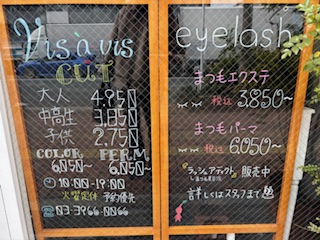 Vis à vis
CUT
大人 4,950
中高生 3,850
子供 2,750
COLOR PERM
6,050~ 6,050~
10:00-19:00
火曜定休 予約優先
☎ 03-3966-0066
eyelash
まつもエクステ
税込 3,850~
まつもパーマ
税込 6,050~
販売中
詳しくはスタッフまで